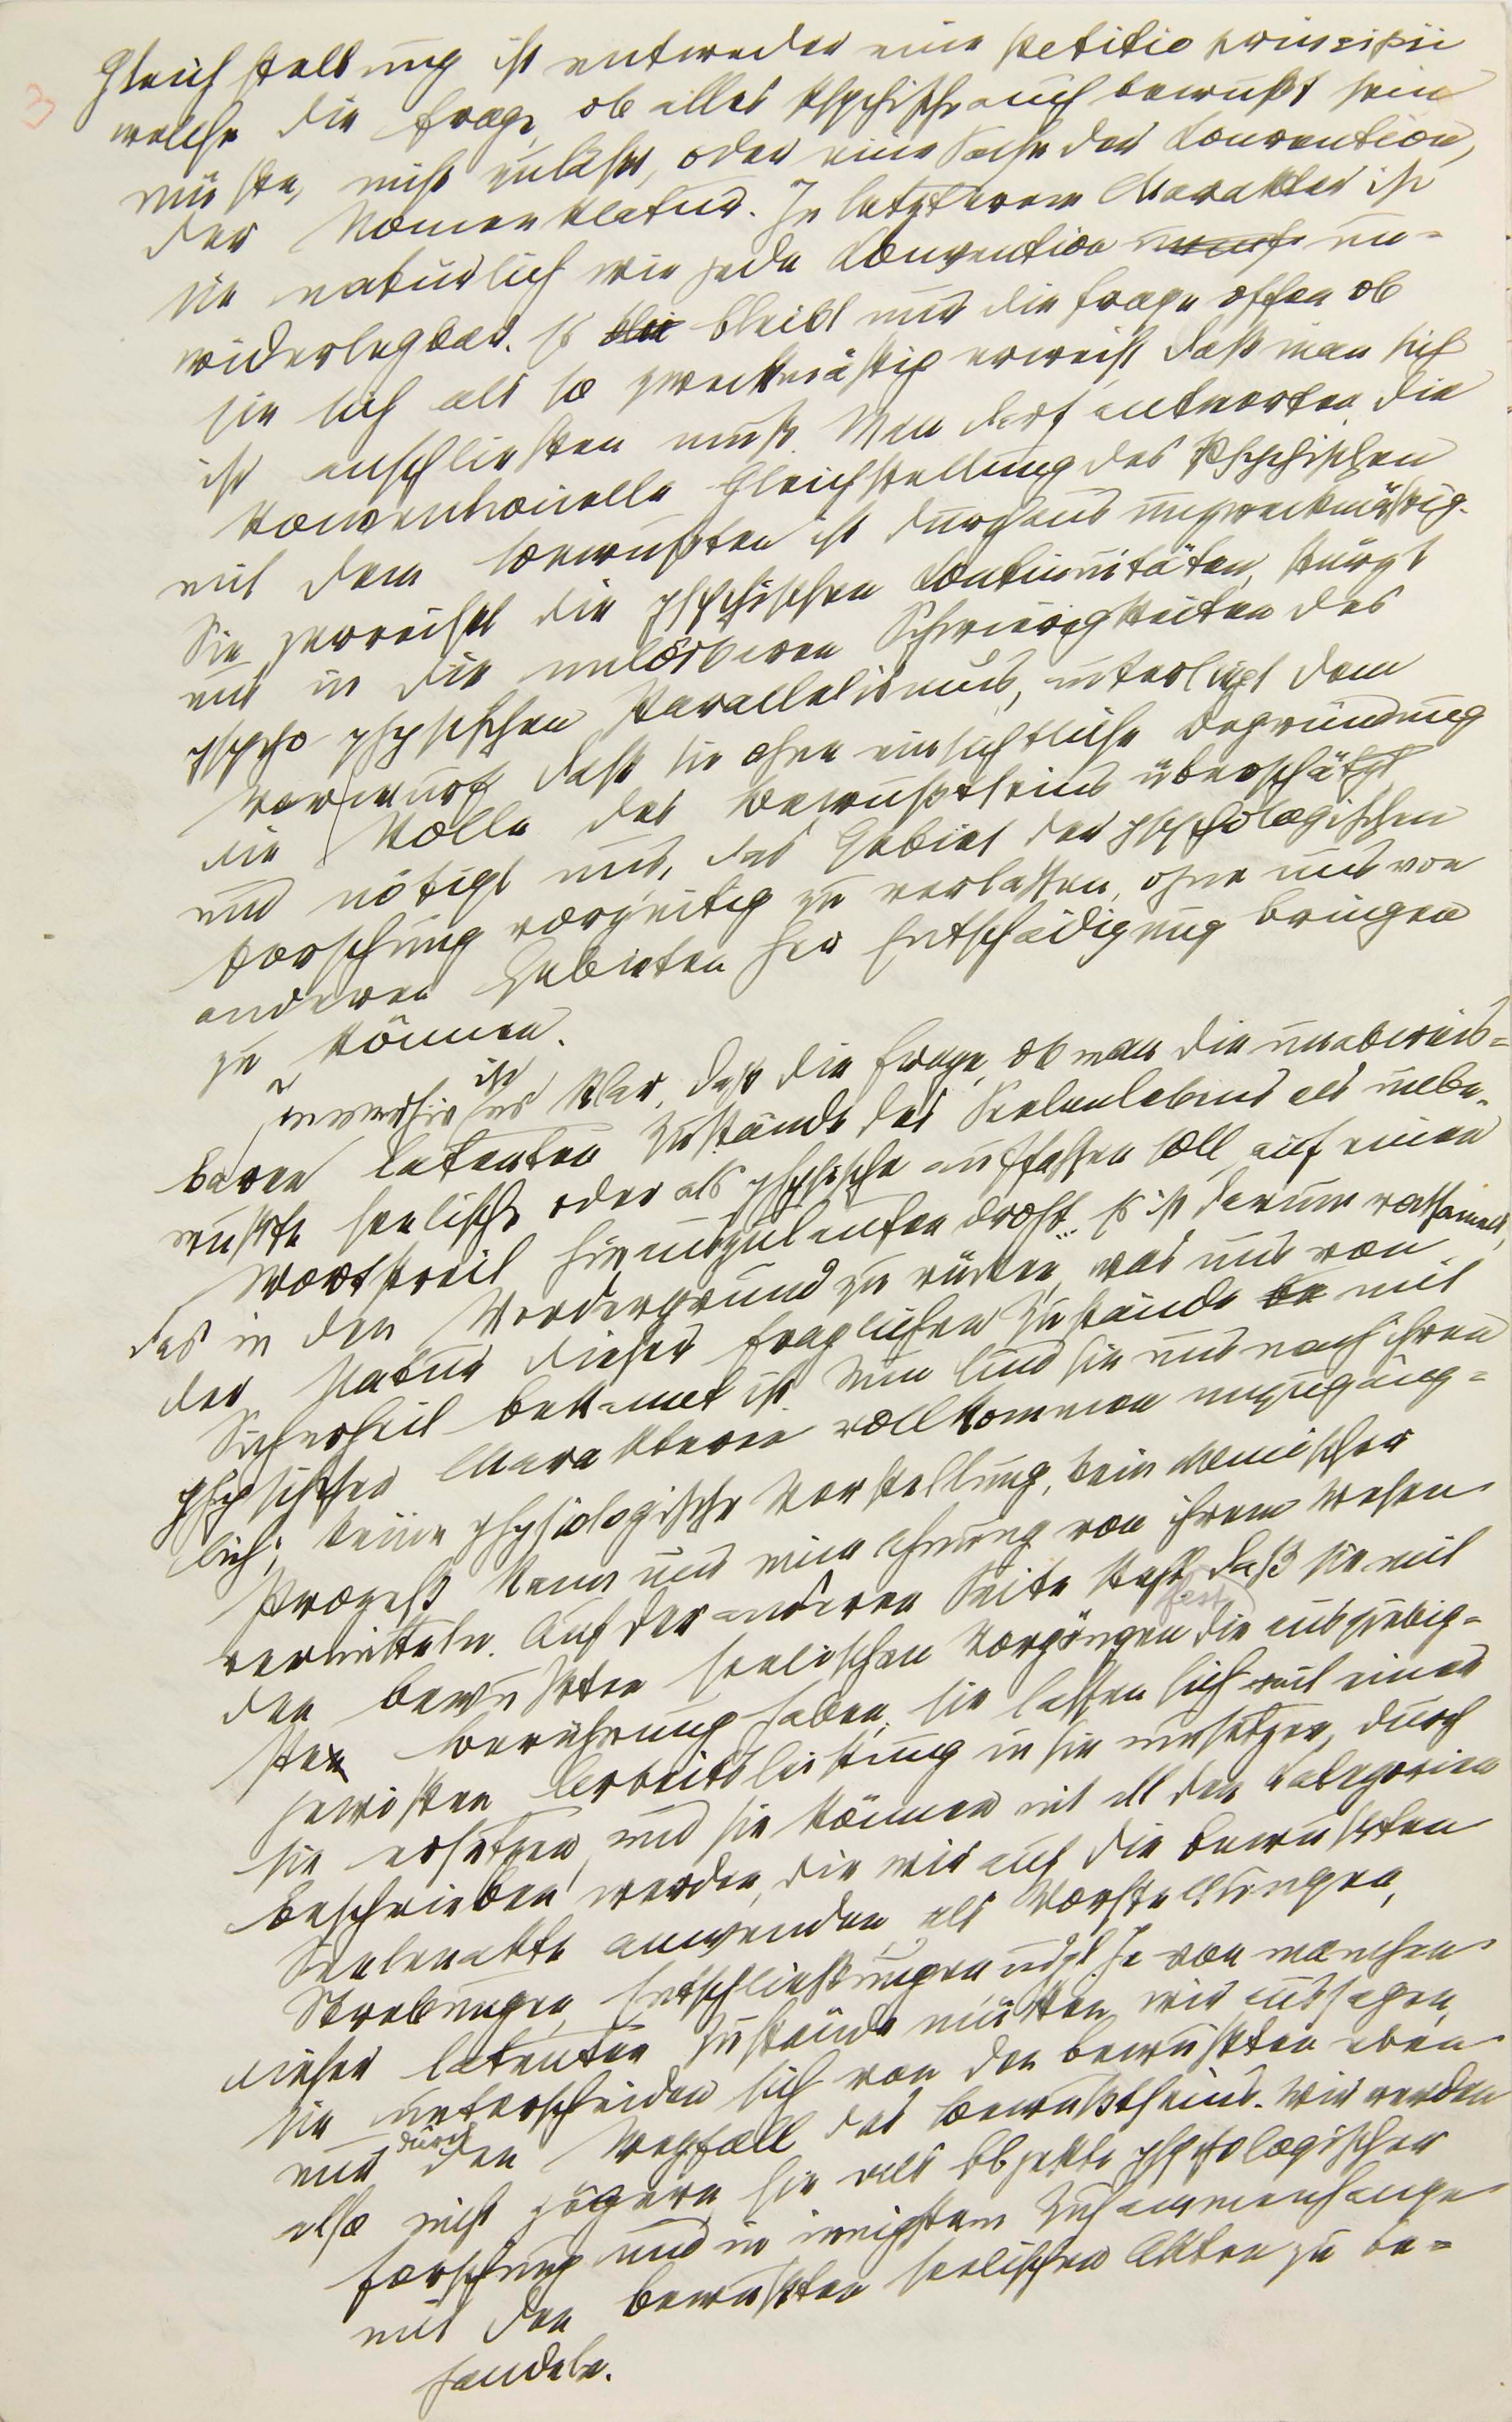 3
Gleichstellung ist entweder eine petitio principii
welche die Frage, ob alles Psychische auch bewußt sein
müsste, nicht zulässt, oder eine Sache der Konvention,
der Nomenklatur. In letzterem Charakter ist
sie natürlich wie jede Konvention un=
widerlegbar. Es blei bleibt nur die Frage offen ob
sie sich als so zweckmässig erweist daß man sich
ihr anschliessen muß. Man darf antworten, die
konventionelle Gleichstellung des Psychischen
mit dem bewussten ist durchaus unzweckmässig.
Sie zerreisst die psychischen Kontinuitäten, stürzt
uns in die unlösbaren Schwierigkeiten des
psychophysischen Parallelismus, unterliegt dem
Vorwurf, daß sie ohne einsichtliche Begründung
die Rolle des Bewusstseins überschätzt
und nötigt uns, das Gebiet der psychologischen
Forschung vorzeitig zu verlassen, ohne uns von
anderen Gebieten her Entschädigung bringen
zu können.
Immerhin ist es klar, daß die Frage, ob man die unabweis=
baren latenten Zustände des Seelenlebens als unbe=
wusste seelische oder als physische auffassen soll auf einen
Wortstreit hinauszulaufen droht. Es ist darum ratsamer,
das in den Vordergrund zu rücken, was uns von
der Natur dieser fraglichen Zustände mit
Sicherheit bekannt ist. Nun sind sie uns nach ihren
physischen Charakteren vollkommen unzugäng=
lich; keine physiologische Vorstellung, kein chemischer
Prozeß kann uns eine Ahnung von ihrem Wesen
vermitteln. Auf der anderen Seite steht fest daß sie mit
den bewussten seelischen Vorgängen die ausgiebig=
ste Berührung haben; sie lassen sich mit einer
gewissen Arbeitsleistung in sie umsetzen, durch
sie ersetzen, und sie können mit all den Kategorien
beschrieben werden, die wir auf die bewussten
Seelenakte anwenden, als Vorstellungen,
Strebungen, Entschliessungen u dgl. Ja von manchen
dieser latenten Zustände müssen wir aussagen,
sie unterscheiden sich von den bewussten eben
nur durch den Wegfall des Bewusstseins. Wir werden
also nicht zögern, sie als Objekte psychologischer
Forschung und in innigstem Zusammenhange
mit den bewussten seelischen Akten zu be=
handeln.